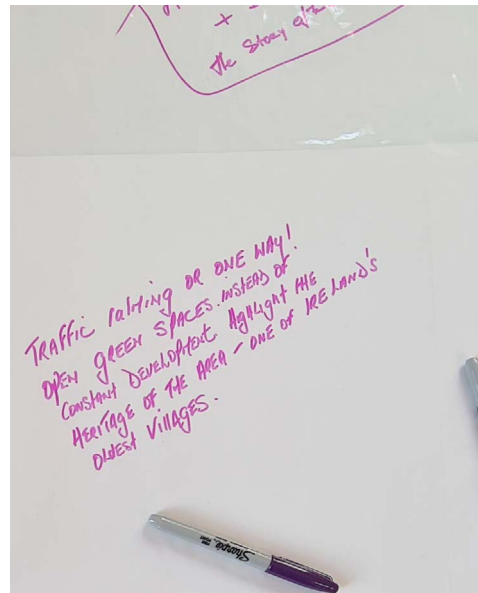 +
The Story of
TRAFFIC CALMING OR ONE WAY!
OPEN GREEN SPACES INSTEAD OF
CONSTANT DEVELOPMENT. HIGHLIGHT THE
HERITAGE OF THE AREA - ONE OF IRELAND'S
OLDEST VILLAGES.
Sharpie